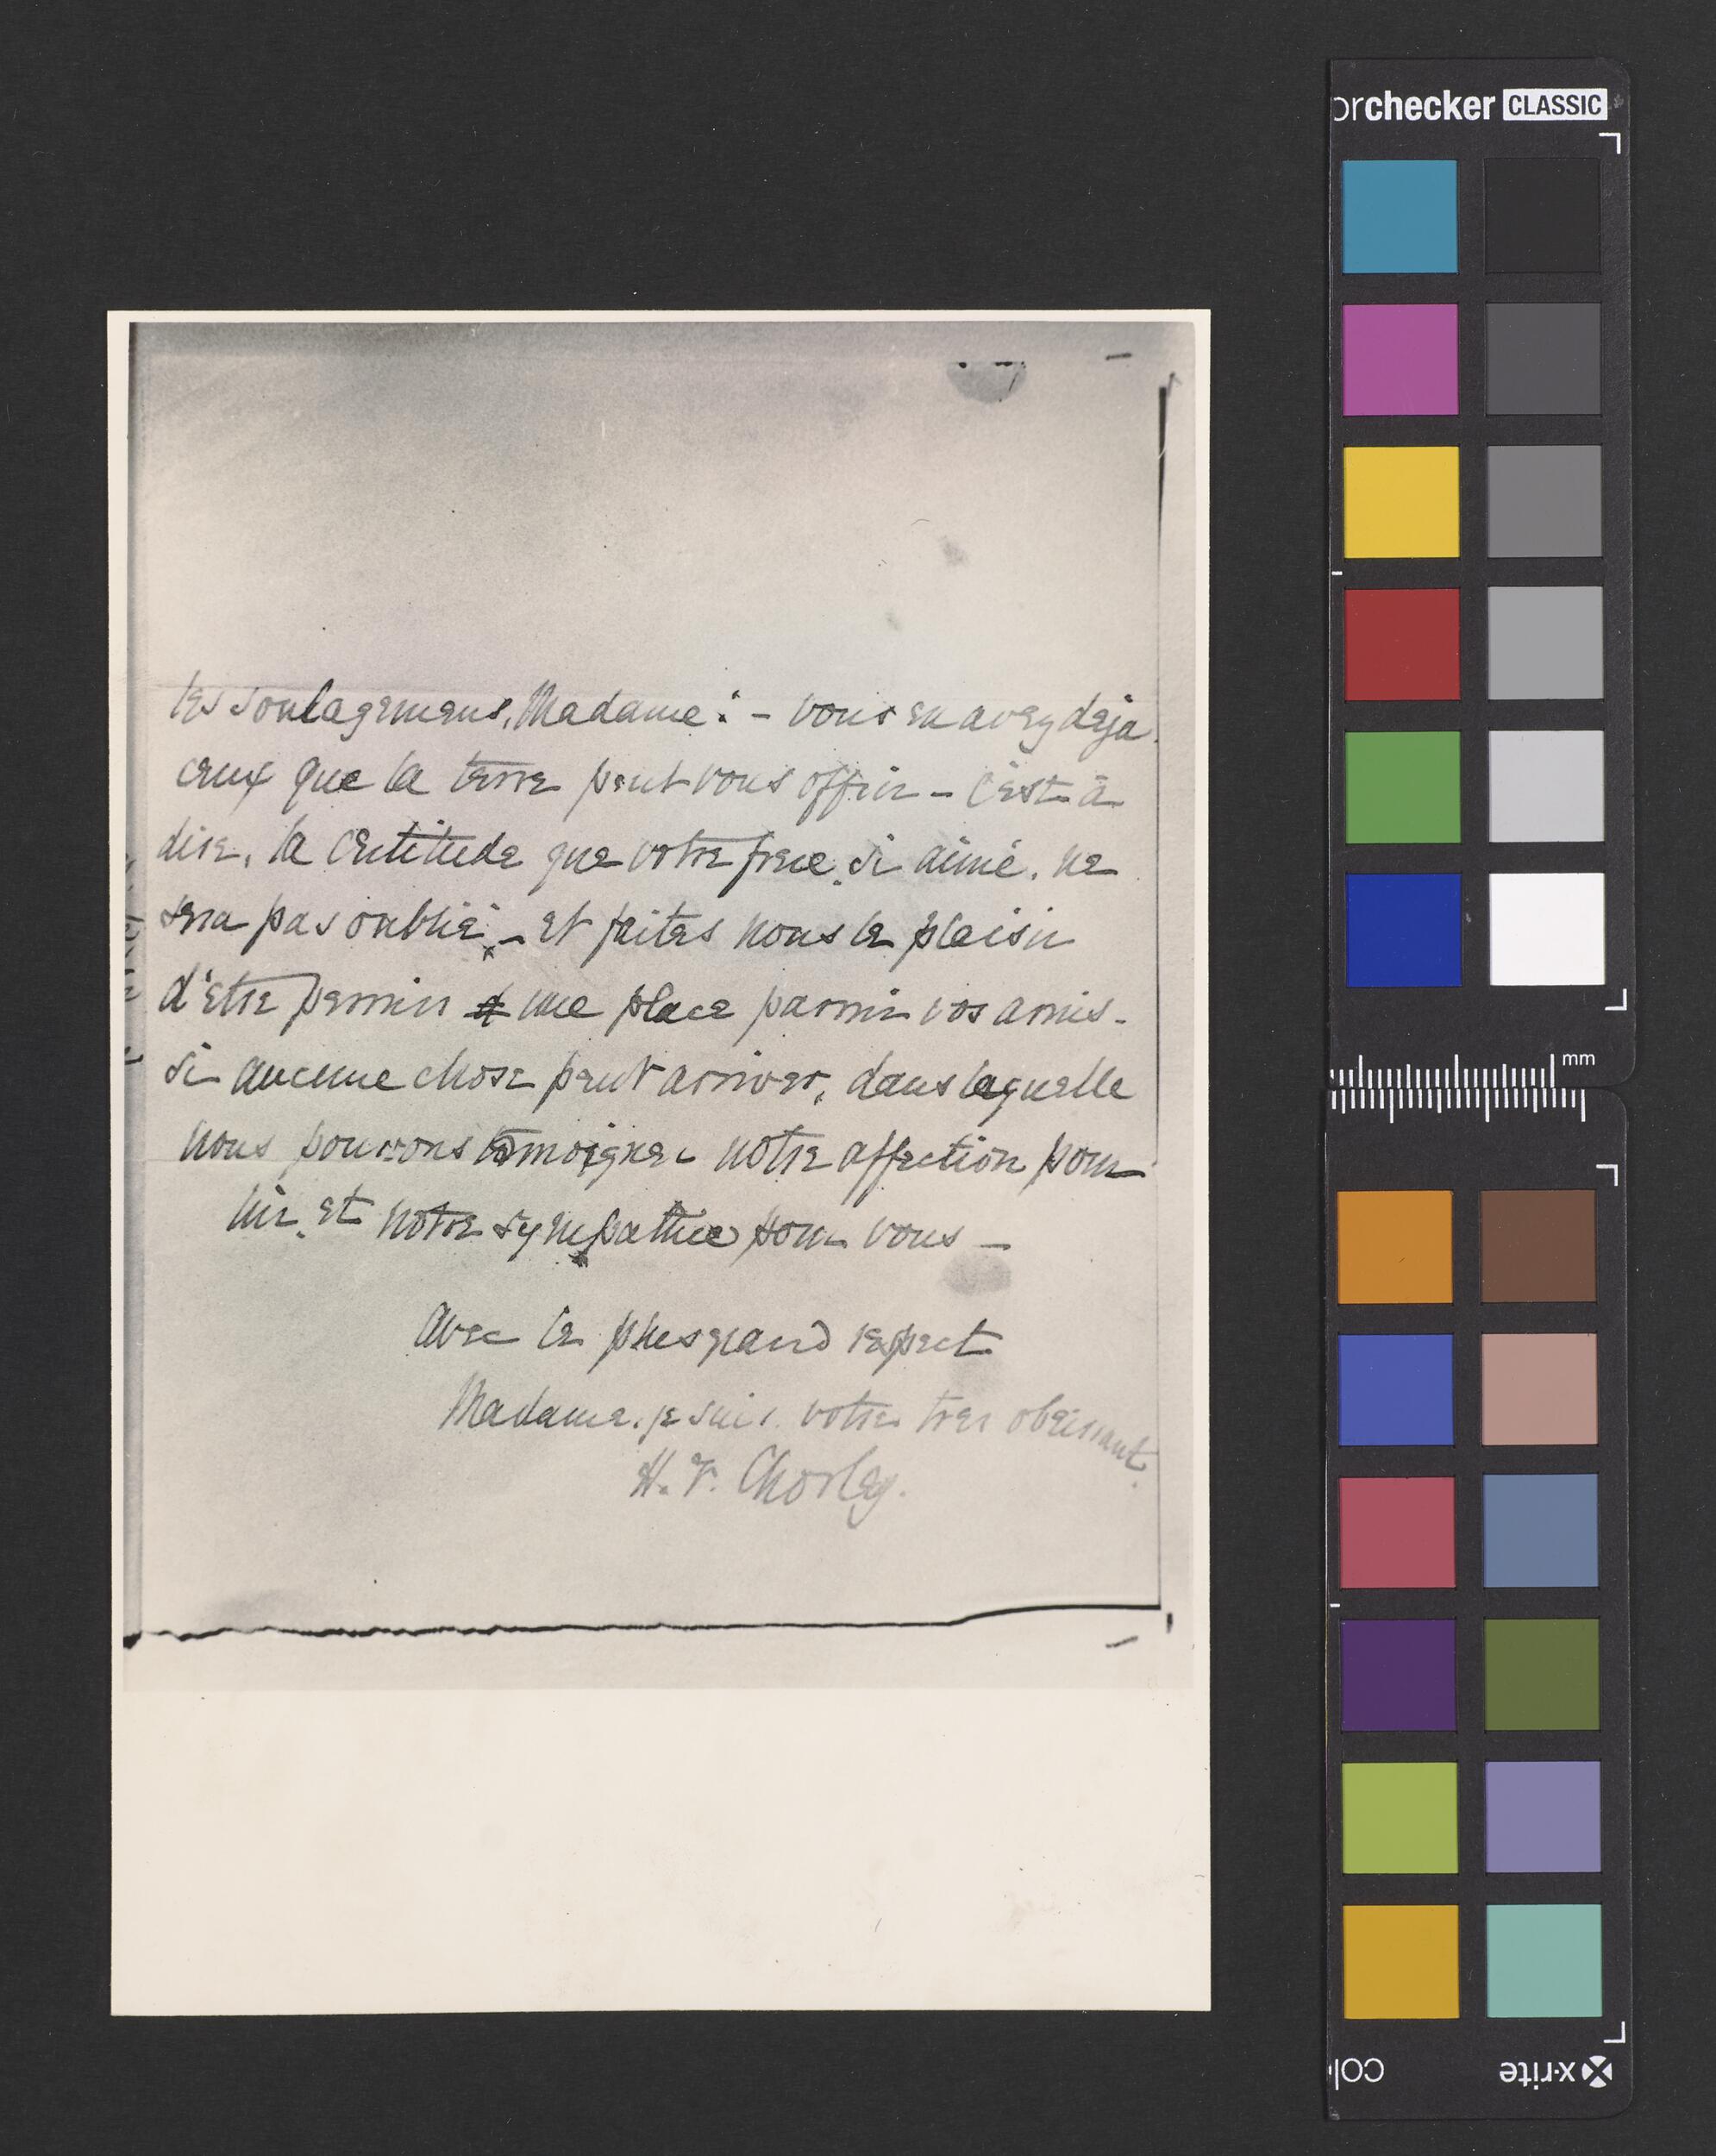 les soulagemens, Madame: - vous en avez déja
ceux que la terre peut vous offrir - c'est à
dire, la certitude que votre frere, si aimé, ne
sera pas oublié - et faites nous le plaisir
d'être permis une place parmi vos amis -
si aucune chose peut arriver, dans laquelle
nous pouvons témoigner notre affection pour
lui, et notre sympathie pour vous -
Avec le plus grand respect
Madame, je suis votre tres obeissant
H. F. Chorley.
orchecker CLASSIC
mm
x-rite
colo